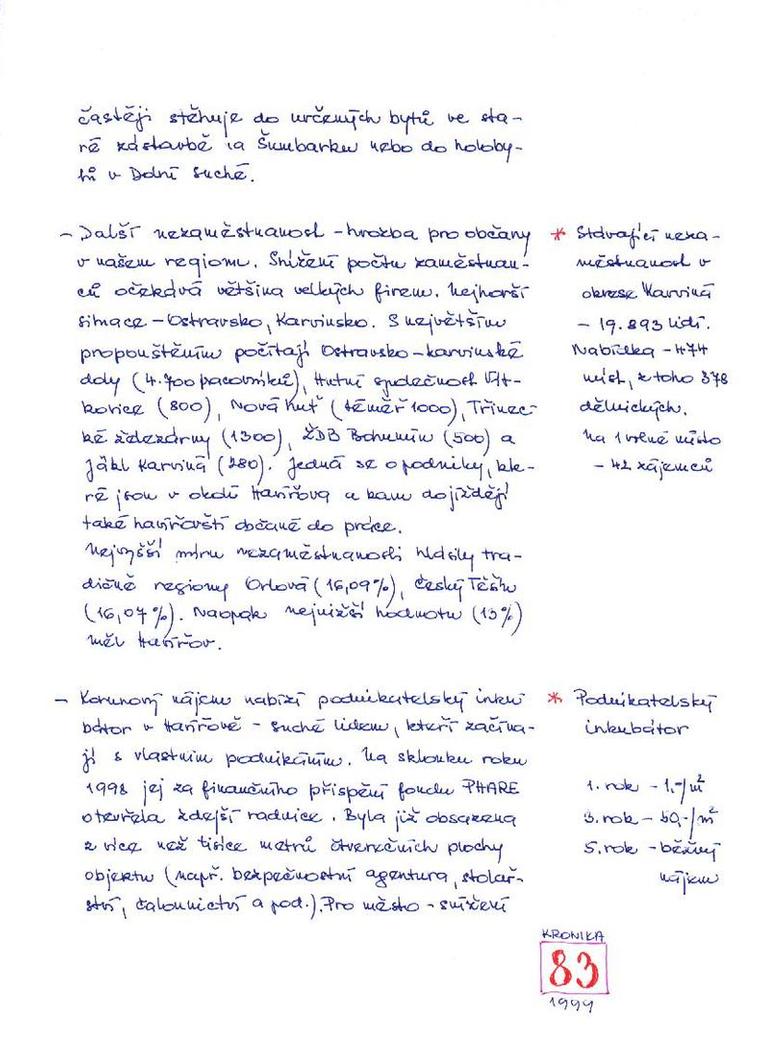 častěji stěhuje do určených bytů ve sta-
ré zástavbě na Šumbarku nebo do holoby-
tů v Dolní Suché.
- Další nezaměstnanost - hrozba pro občany
v našem regionu. Snížení počtu zaměstnan-
ců očekává většina velkých firem. Nejhorší
situace - Ostravsko, Karvinsko. S největším
propouštěním počítají Ostravsko-karvinské
doly (4.700 pacovníků), Hutní společnost Vít-
kovice (800), Nová huť (téměř 1000), Třinec-
ké železárny (1300), ŽDB Bohumín (500) a
Jäkl Karviná (280). Jedná se o podniky, kte-
ré jsou v okolí Havířova a kam dojíždějí
také havířovští občané do práce.
Nejvyšší míru nezaměstnanosti hlásily tra-
dičně regiony Orlová (16,09%), Český Těšín
(16,07%). Naopak nejnižší hodnotu (13%)
měl Havířov.
* Stávající neza-
městnanost v
okrese Karviná
- 19.893 lidí.
Nabídka - 474
míst, z toho 378
dělnických.
Na 1 volné místo
- 42 zájemců
- Korunový nájem nabízí podnikatelský inku
bátor v Havířově - Suché lidem, kteří začína-
jí s vlastním podnikáním. Na sklonku roku
1998 jej za finančního přispění fondu PHARE
otevřela zdejší radnice. Byla již obsazena
z více než tisíce metrů čtverečních plochy
objektu (např. bezpečnostní agentura, stolař-
ství, čalounictví a pod.). Pro město - snížení
* Podnikatelský
inkubátor
1. rok - 1,-/m²
3. rok - 50,-/m²
5. rok - běžný
nájem
KRONIKA
83
1999